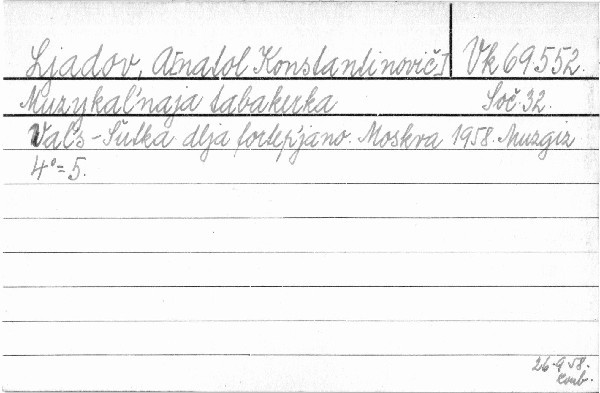 Ljadov, A[natol Konstantinovič] Vk 69.552.
Muzykal'naja tabakerka Soč 32.
Val's-Šutka dlja fortep'jano. Moskva 1958. Muzgiz
4°= 5.
26-9-58.